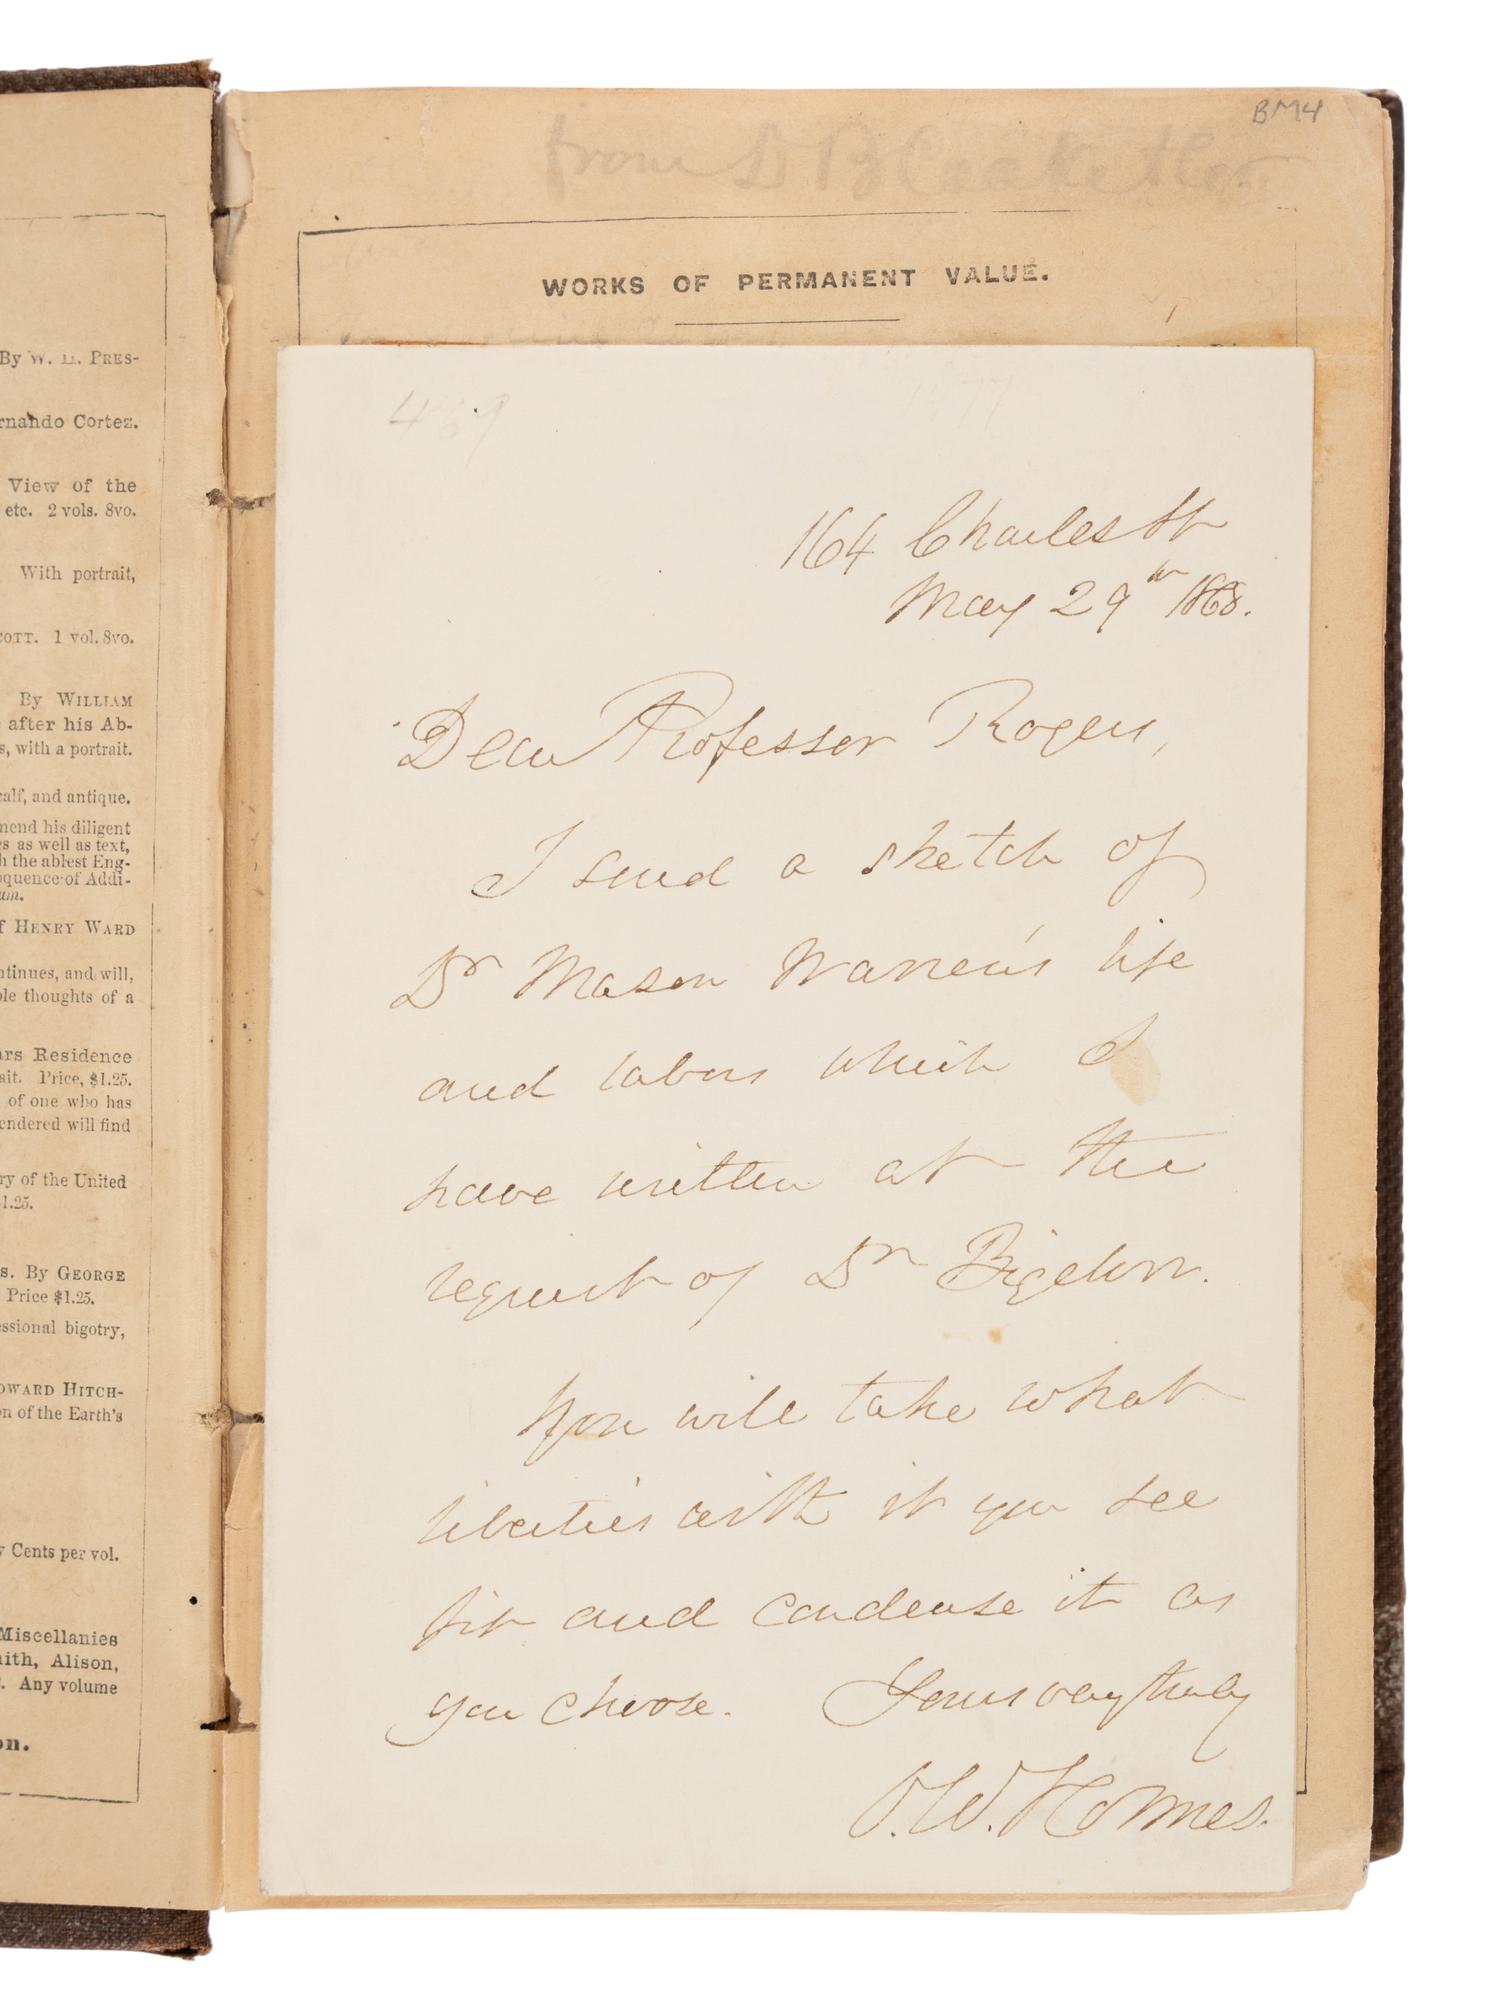 By W. H. PRES-
rnando Cortez.
View of the
etc. 2 vols. 8vo.
With portrait,
COTT. 1 vol. 8vo.
By WILLIAM
after his Ab-
s, with a portrait.
calf, and antique.
mend his diligent
es as well as text,
h the ablest Eng-
oquence of Addi-
um.
f HENRY WARD
ntinues, and will,
ble thoughts of a
ars Residence
ait. Price, $1.25.
of one who has
endered will find
ry of the United
$1.25.
s. By GEORGE
Price $1.25.
essional bigotry,
DWARD HITCH-
on of the Earth's
y Cents per vol.
Miscellanies
ith, Alison,
Any volume
on.
BM4
from D B
WORKS OF PERMANENT VALUE.
469
164 Charles St
May 29th 1868.
Dear Professor Rogers,
I send a sketch of
Dr Mason Warren's life
and labors which I
have written at the
request of Dr Bigelow.
You will take what
liberties with it you see
fit and condense it as
you choose. Yours very truly
O. W. Holmes.